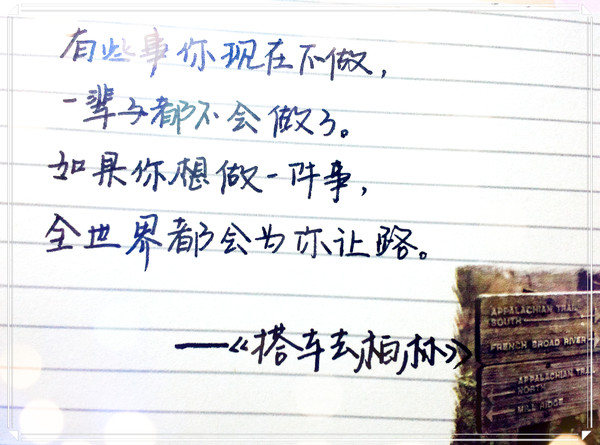 有些事你现在不做，
一辈子都不会做了。
如果你想做一件事，
全世界都会为你让路。
——《搭车去柏林》
APPALACHIAN TRAIL
SOUTH
FRENCH BROAD RIVER
APPALACHIAN TRAIL
NORTH
MILL RIDGE